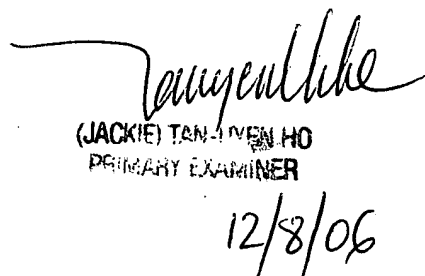 (JACKIE) TAN-UYEN HO
PRIMARY EXAMINER
12/8/06